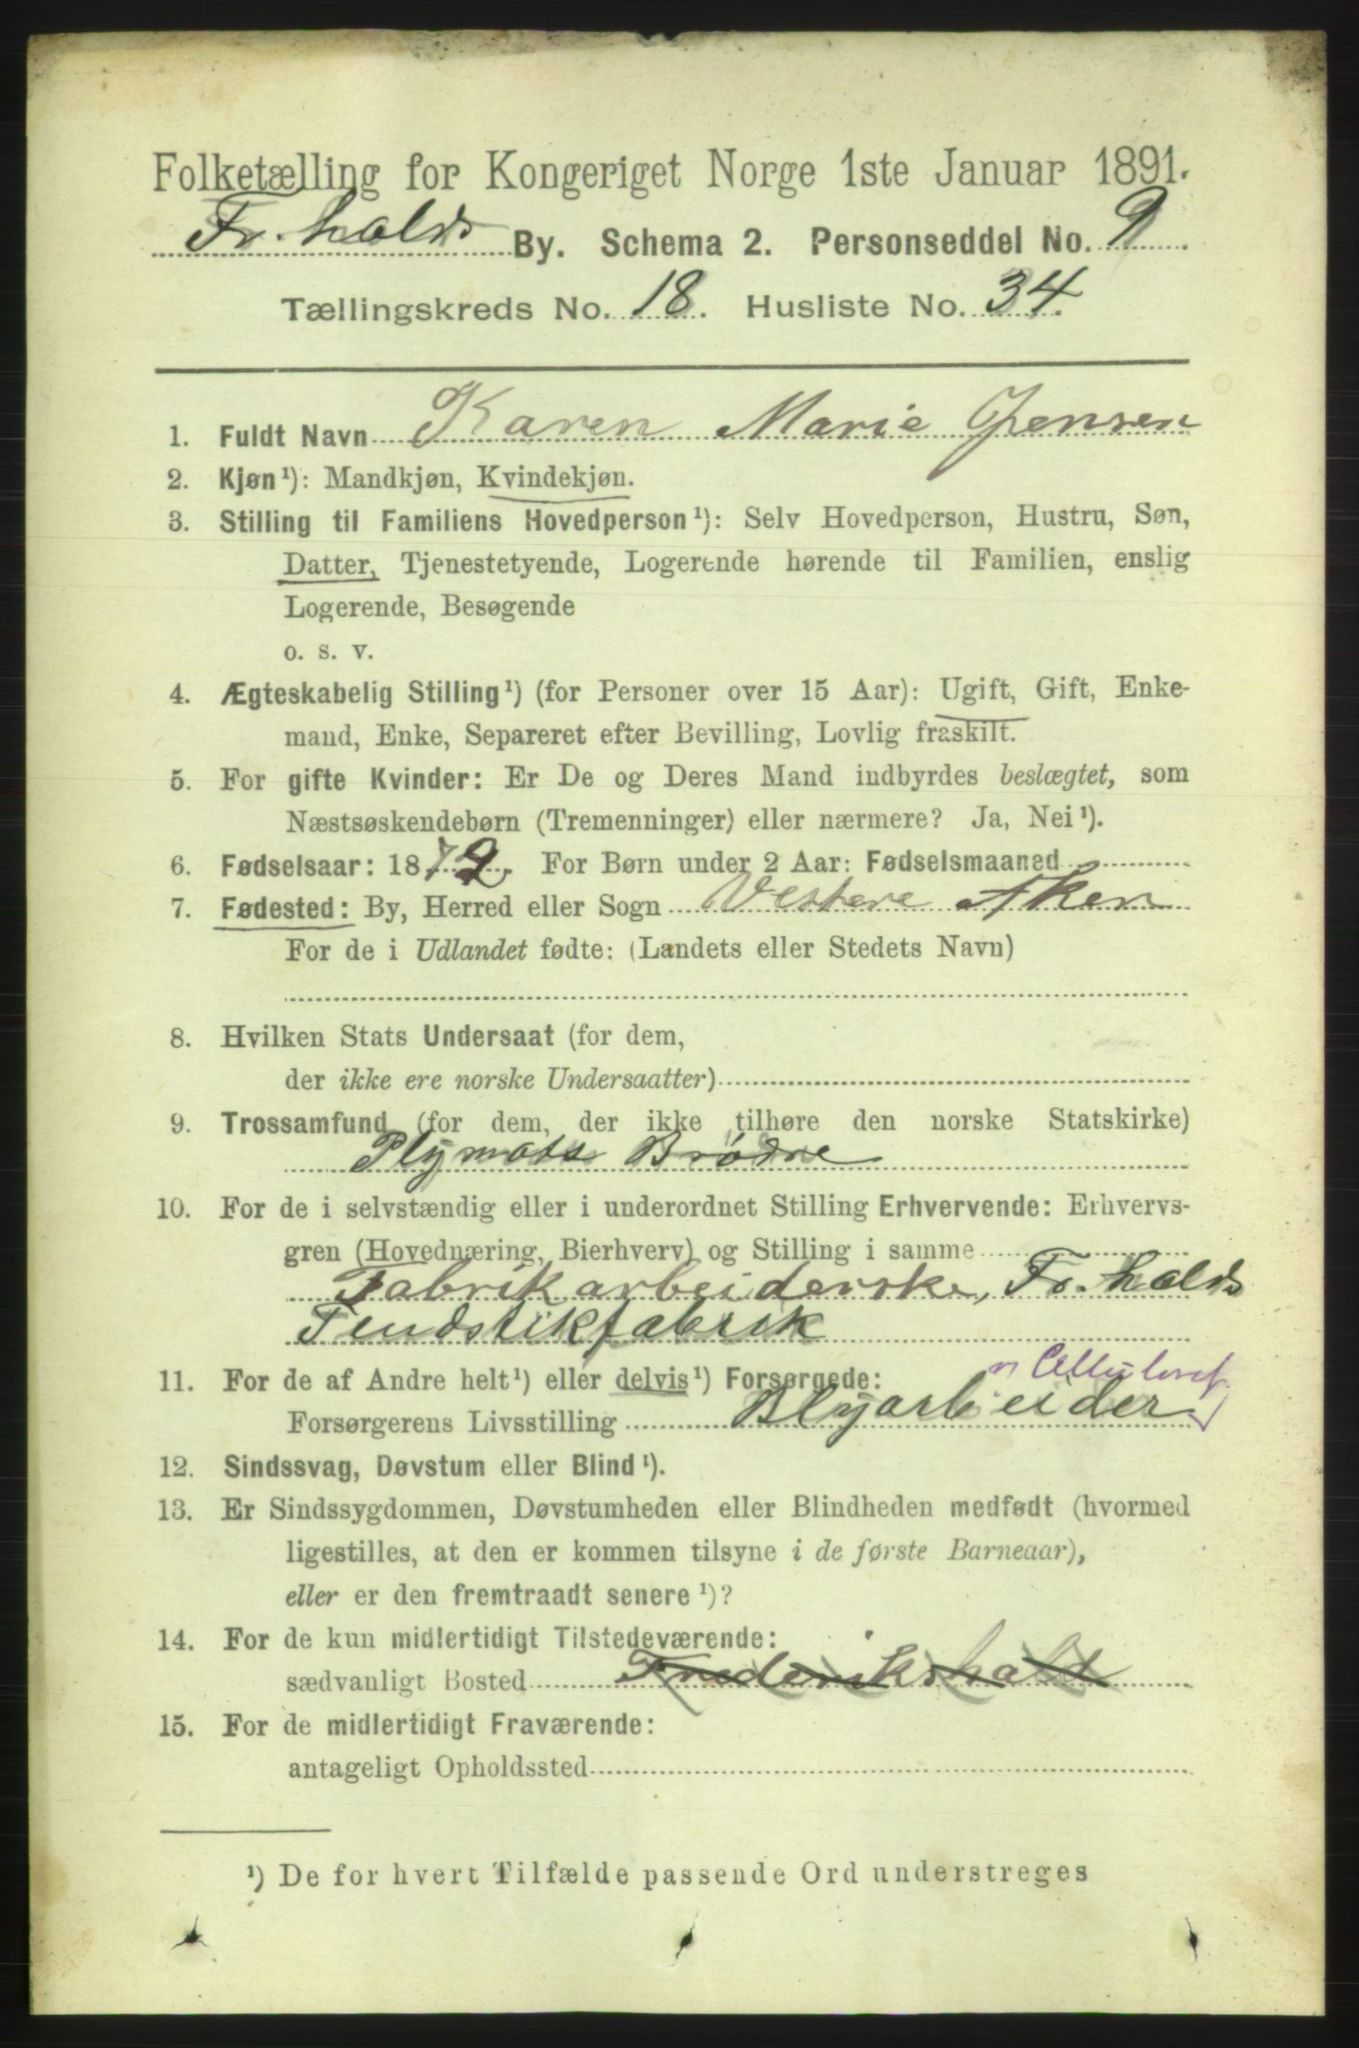 Folketælling for Kongeriget Norge 1ste Januar 1891.
Fr. halds By. Schema 2. Personseddel No. 9.
Tællingskreds No. 18. Husliste No. 34.
1. Fuldt Navn Karen Marie Jensen
2. Kjøn ¹): Mandkjøn, Kvindekjøn.
3. Stilling til Familiens Hovedperson ¹): Selv Hovedperson, Hustru, Søn,
Datter, Tjenestetyende, Logerende hørende til Familien, enslig
Logerende, Besøgende
o. s. v.
4. Ægteskabelig Stilling ¹) (for Personer over 15 Aar): Ugift, Gift, Enke-
mand, Enke, Separeret efter Bevilling, Lovlig fraskilt.
5. For gifte Kvinder: Er De og Deres Mand indbyrdes beslægtet, som
Næstsøskendebørn (Tremenninger) eller nærmere? Ja, Nei ¹).
6. Fødselsaar: 1872. For Børn under 2 Aar: Fødselsmaaned
7. Fødested: By, Herred eller Sogn Vestere Aker
For de i Udlandet fødte: (Landets eller Stedets Navn)
8. Hvilken Stats Undersaat (for dem,
der ikke ere norske Undersaatter)
9. Trossamfund (for dem, der ikke tilhøre den norske Statskirke)
Plymots Brødre
10. For de i selvstændig eller i underordnet Stilling Erhvervende: Erhvervs-
gren (Hovednæring, Bierhverv) og Stilling i samme
Fabrikarbeiderske, Fr. halds
Tendstikfabrik
11. For de af Andre helt ¹) eller delvis ¹) Forsørgede:
Forsørgerens Livsstilling Blyarbeider
12. Sindssvag, Døvstum eller Blind ¹).
13. Er Sindssygdommen, Døvstumheden eller Blindheden medfødt (hvormed
ligestilles, at den er kommen tilsyne i de første Barneaar),
eller er den fremtraadt senere ¹)?
14. For de kun midlertidigt Tilstedeværende:
sædvanligt Bosted Frederikshald
15. For de midlertidigt Fraværende:
antageligt Opholdssted
¹) De for hvert Tilfælde passende Ord understreges